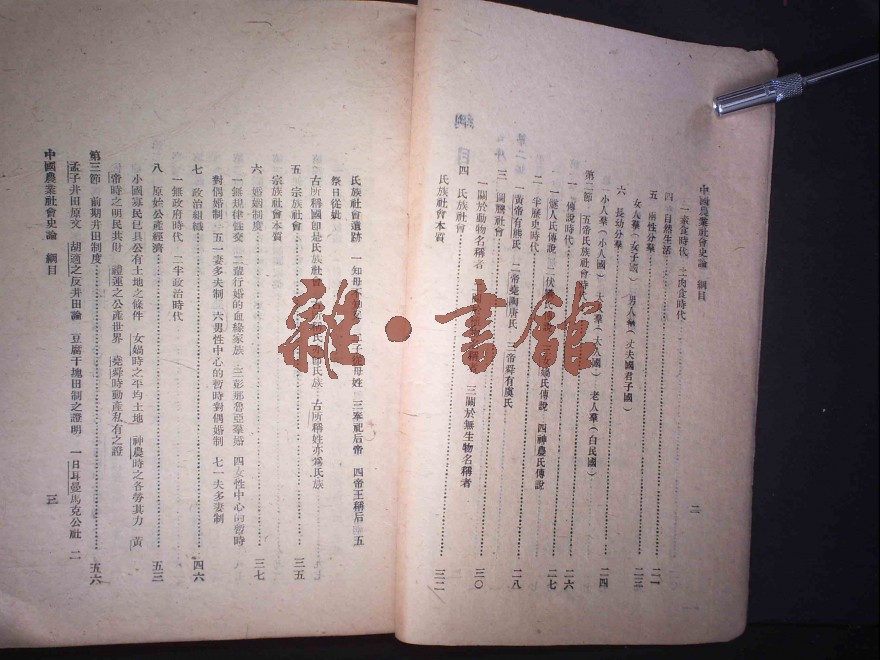 中國農業社會史論　綱目
二
一素食時代　二肉食時代
四　自然生活……二一
五　兩性分羣……二二
女人羣（女子國）　男人羣（丈夫國君子國）
六　長幼分羣……二四
小人羣（小人國）　大人羣（大人國）　老人羣（白民國）
第二節　五帝氏族社會時
一　傳說時代……二六
一燧人氏傳說　二伏　媧氏傳說　四神農氏傳說
二　半歷史時代……二七
一黃帝有熊氏　二帝堯陶唐氏　三帝舜有虞氏
三　圖騰社會……二八
一關於動物名稱者　三關於無生物名稱者
四　氏族社會……三〇
氏族社會本質……三二
氏族社會遺跡　一知母不知父　二子從母姓　三奉祀后帝　四帝王稱后　五
祭日從妣
古所稱國卽是氏族社會　氏族　古所稱姓亦爲氏族
五　宗族社會……三五
宗族社會本質
六　婚姻制度……三七
一無規律性交　二輩行婚的血緣家族　三彭那魯亞羣婚　四女性中心的暫時
對偶婚制　五一妻多夫制　六男性中心的暫時對偶婚制　七一夫多妻制
七　政治組織……四六
一無政府時代　二半政治時代
八　原始公產經濟……五三
小國寡民已具公有土地之條件　女媧時之平均土地　神農時之各勞其力　黃
帝時之明民共財　禮運之公產世界　堯舜時動產私有之證
第三節　前期井田制度……五六
孟子井田原文　胡適之反井田論　豆腐干塊田制之證明　一日耳曼馬克公社　二
中國農業社會史論　綱目
三
雜·書館